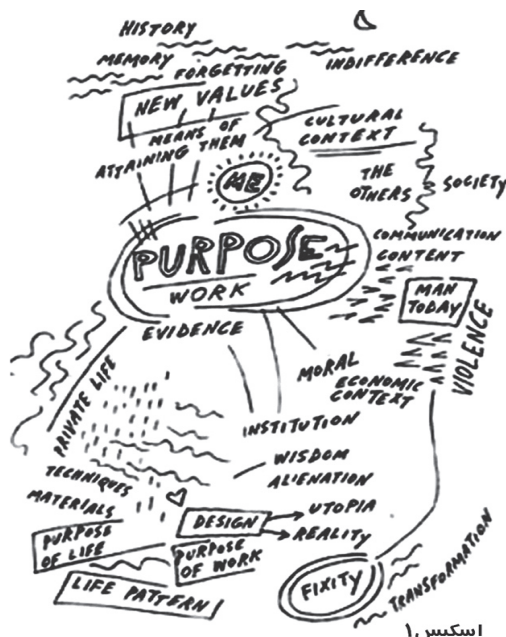 HISTORY
MEMORY
FORGETTING
INDIFFERENCE
NEW VALUES
MEANS OF
ATTAINING THEM
CULTURAL
CONTEXT
ME
THE
OTHERS
SOCIETY
PURPOSE
WORK
COMMUNICATION
CONTENT
MAN
TODAY
VIOLENCE
EVIDENCE
PRIVATE LIFE
MORAL
ECONOMIC
CONTEXT
INSTITUTION
WISDOM
ALIENATION
TECHNIQUES
MATERIALS
DESIGN
UTOPIA
REALITY
PURPOSE
OF LIFE
PURPOSE
OF WORK
LIFE PATTERN
FIXITY
TRANSFORMATION
اسکیس ۱